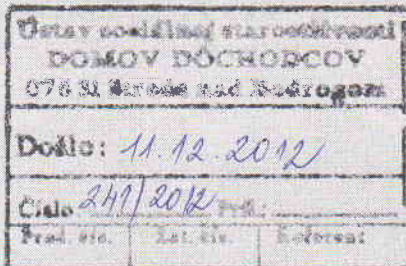 Ústav sociálnej starostlivosti
DOMOV DÔCHODCOV
076 31 Streda nad Bodrogom
Došlo: 11.12.2012
Číslo 241/2012 Príl.:
Pred. čís. Zat. čís. Referent